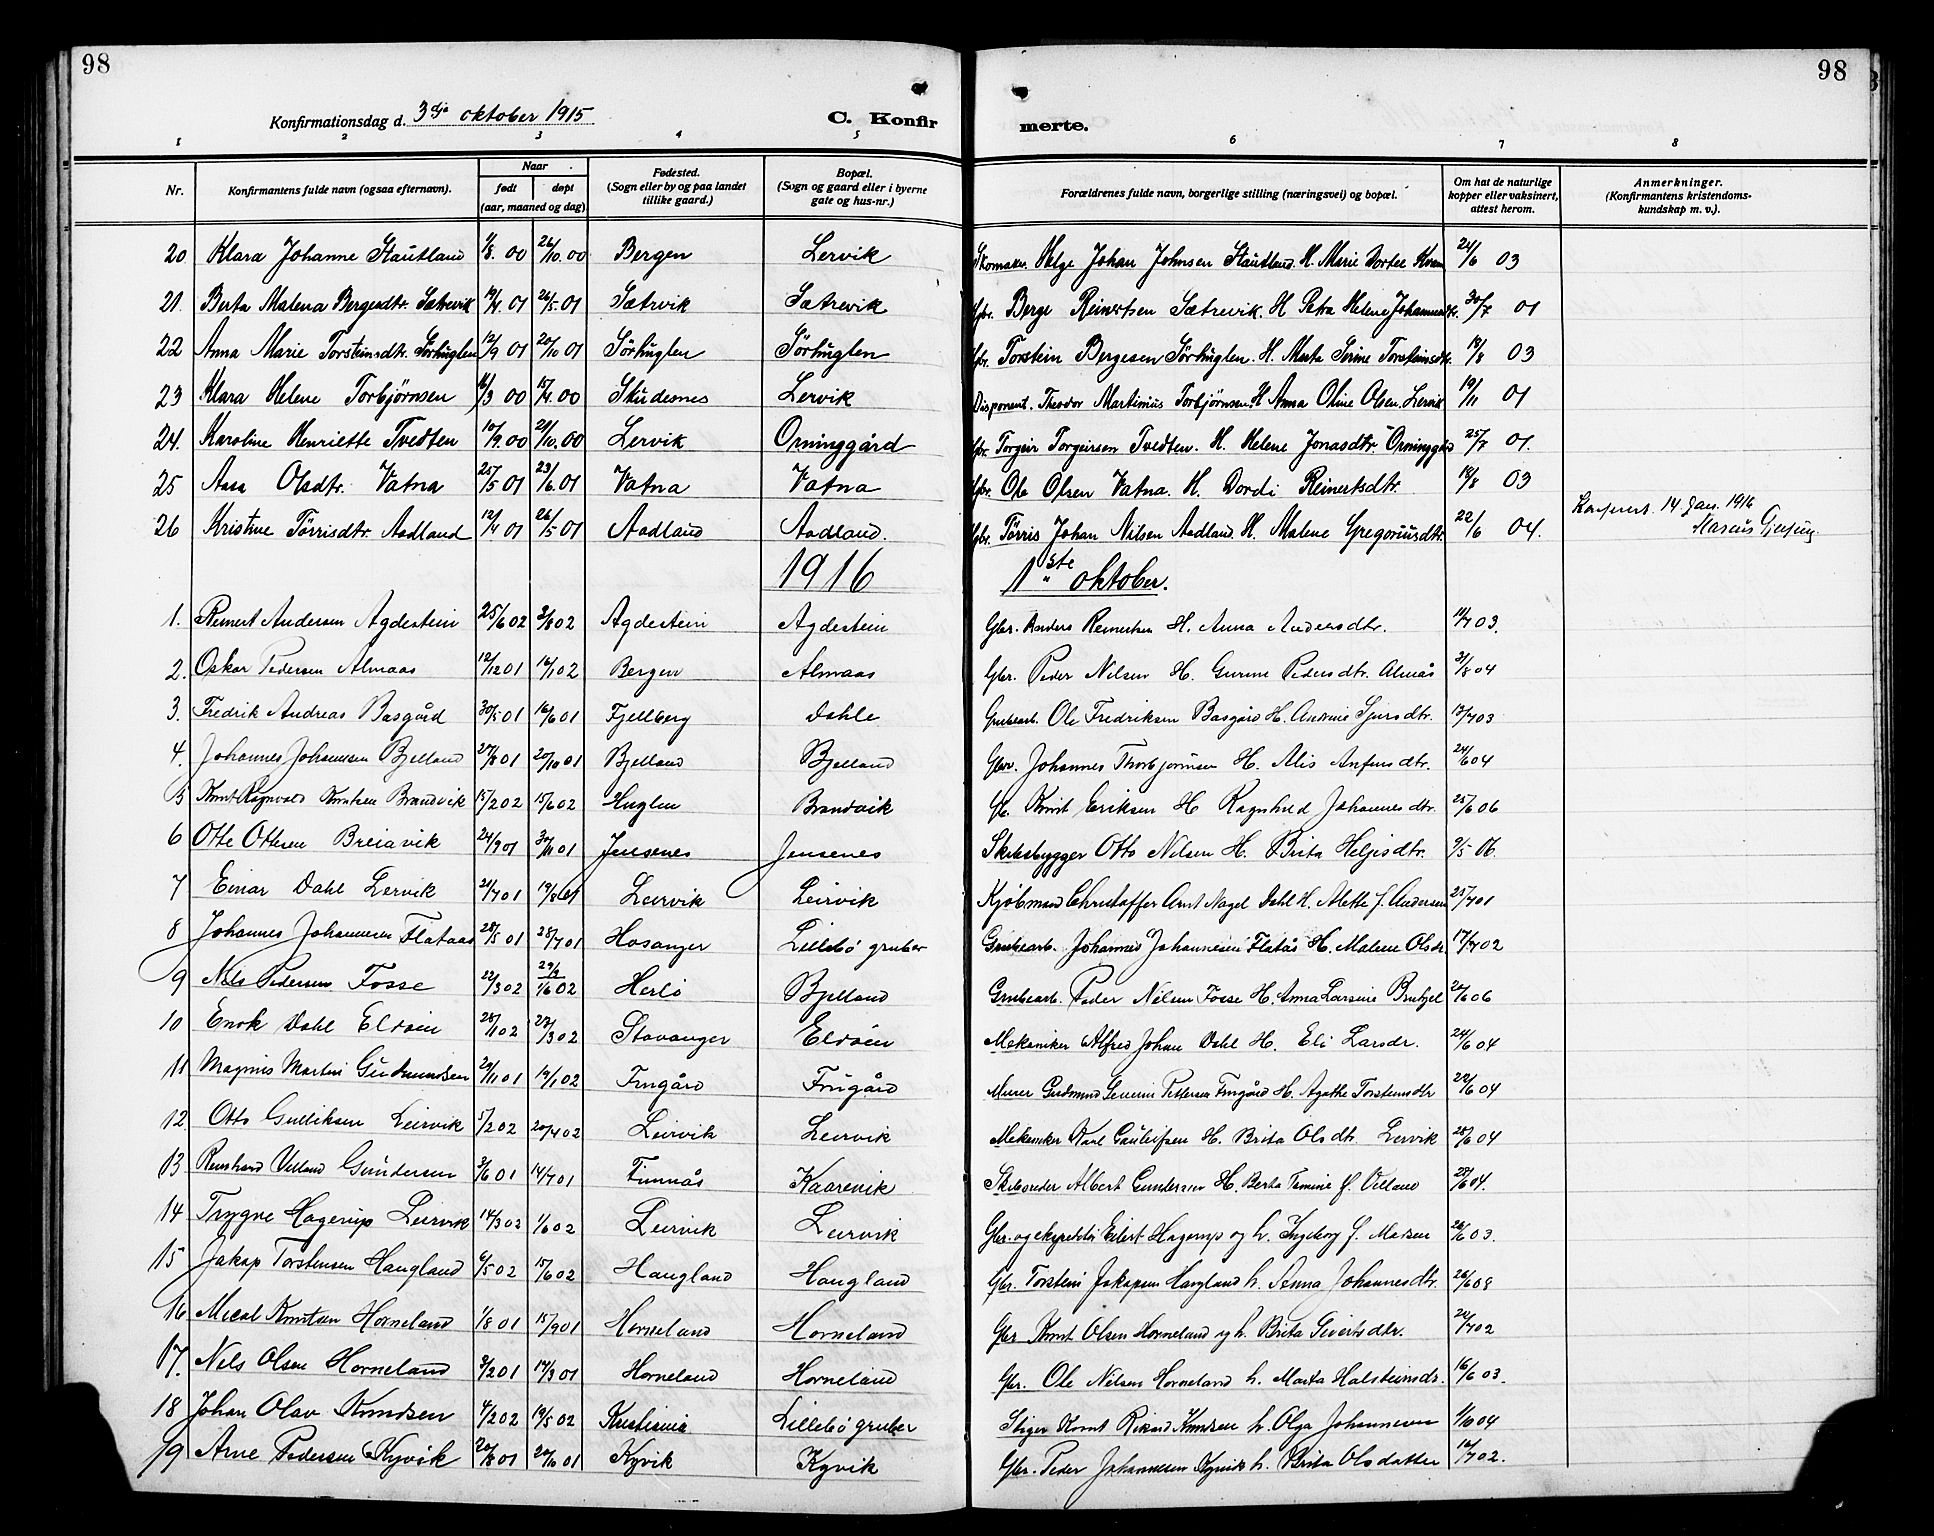 98
98
Konfirmationsdag d. 3dje oktober 1915
C. Konfir
merte.
1 2 3 4 5 6 7 8
Nr.
Konfirmantens fulde navn (ogsaa efternavn).
Naar
født
døpt
(aar, maaned og dag)
Fødested.
(Sogn eller by og paa landet
tillike gaard.)
Bopæl.
(Sogn og gaard eller i byerne
gate og hus-nr.)
Forældrenes fulde navn, borgerlige stilling (næringsvei) og bopæl.
Om hat de naturlige
kopper eller vaksinert,
attest herom.
Anmerkninger.
(Konfirmantens kristendoms-
kundskap m. v.).
20 Klara Johanne Stautland 1/8. 00 26/10. 00 Bergen Lervik Skomaker. Helge Johan Johnsen Stautland. H. Marie Dortee 24/6 03
21. Berta Malena Bergesdtr. Sætrevik 19/4. 01 26/5. 01 Sætrvik Sætrevik Gbr. Berge Reinertsen Sætrevik. H Petra Helene Johannesdtr. 30/7 01
22 Anna Marie Torsteinsdtr. Sørhuglen 12/9 01 20/10 01 Sørhuglen Sørhuglen Gbr. Torstein Bergesen Sørhuglen. H. Marta Serine Torsteinsdtr. 18/8 03
23 Klara Helene Torbjørnsen 16/3 00 15/4. 00 Skudesnes Lervik Disponent. Theodor Martinius Torbjørnsen. H Anna Oline Olsen. Lervik 19/11 01
24. Karoline Henriette Tvedten 10/9. 00 21/10. 00 Lervik Orninggård Gbr. Torgeir Torgeirsen Tvedten. H. Helene Jonasdtr. Orninggård 25/7 01.
25 Aasa Olsdtr. Vatna 25/5 01 23/6. 01 Vatna Vatna Gbr. Ole Olsen Vatna. H. Dordi Reinertsdtr. 18/8 03
26 Kristine Tørrisdtr. Aadland 12/4 01 26/5 01 Aadland Aadland. Gbr. Tørris Johan Nilsen Aadland. H. Malene Gregoriusdtr. 22/6 04. Konferert. 14. Jan. 1916
Marcus
1916 1ste oktober.
1. Reinert Andersen Agdestein 25/6 02 3/8 02 Agdestein Agdestein Gbr. Anders Reinertsen H. Anna Andersdtr. 14/7 03.
2. Oskar Pedersen Almaas 12/12 01 16/1 02 Bergen Almaas Gbr. Peder Nilsen H. Gurine Pedersdtr. Almås 31/8 04
3. Fredrik Andreas Basgård 30/5 01 16/6 01 Fjellberg Dahle Grubearb. Ole Fredriksen Basgård H. Andrine Sjursdtr. 13/7 03
4. Johannes Johannesen Bjelland 27/8 01 20/10 01 Bjelland Bjelland Gbr. Johannes Thorbjørnsen H. Alis Anfinsdtr. 24/6 04
5 Knut Ragnvald Knutsen Brandvik 15/2 02 15/6 02 Huglen Brandvik Gbr. Knut Eriksen H Ragnhild Johannesdtr. 25/6 06
6 Otte Ottesen Breiavik 24/9 01 30/11 01 Jensenes Jensenes Skibsbygger Otto Nilsen H. Brita Heljesdtr. 9/5 06.
7 Einar Dahl Lervik 21/7 01 19/8 01 Leirvik Leirvik Kjøbmand Christoffer Arnt Nagel Dahl H. Alette f. Andersen 25/7 01
8 Johannes Johannesen Flataas 28/5 01 28/7 01 Hosanger Lillebø gruber Grubearb. Johannes Johannesen Flatås H. Malene Olsdr. 17/7 02
9 Nils Pedersen Fosse 22/3 02 29/3 1/6 02 Herlø Bjelland Grubearb. Peder Nilsen Fosse H. Anna Larsine 24/6 06
10 Enok Dahl Eldøen 28/1 02 27/3 02 Stavanger Eldøen Mekaniker Alfred Johan Dahl H. Eli Larsdr. 24/6 04
11 Magnus Martin Gudmundsen 29/11 01 19/1 02 Frugård Frugård Murer Gudmund Severin Pettersen Frugård H. Agathe Torsteinsdtr 22/6 04
12 Otto Gulliksen Leirvik 5/2 02 20/4 02 Leirvik Leirvik Mekaniker Karl Gulliksen H. Brita Olsdtr. Lervik 28/6 04
13 Reinhard Velland Gundersen 3/6 01 14/7 01 Finnås Kaarevik Skibsreder Albert Gundersen H. Berta Tomine f. Velland 28/6 04.
14 Trygve Hagerup Leirvik 14/3 02 1/6 02 Leirvik Leirvik Gbr. og ekspeditør Eilert Hagerup og h. Ingeborg f. Madsen 26/6 03.
15 Jakop Torstensen Haugland 6/5 02 15/6 02 Haugland Haugland Gbr. Torstein Jakopsen Haugland h. Anna Johannesdtr. 26/6 08
16 Mical Knutsen Horneland 1/8 01 15/9 01 Horneland Horneland Gbr Knut Olsen Horneland og h. Brita Sivertsdtr. 22/7 02
17. Nils Olsen Horneland 3/2 01 17/3 01 Horneland Horneland Gbr. Ole Nilsen Horneland h. Marta Halsteinsdr. 16/6 03.
18 Johan Olav Knudsen 4/2 02 19/5 02 Kristiania Lillebø gruber Stiger Knut Rikard Knudsen h. Olga Johannesen 1/10 04
19 Arne Pedersen Kyvik 20/8 01 20/10 01 Kyvik Kyvik Gbr. Peder Johannesen Kyvik h. Brita Olsdatter 12/7 02.